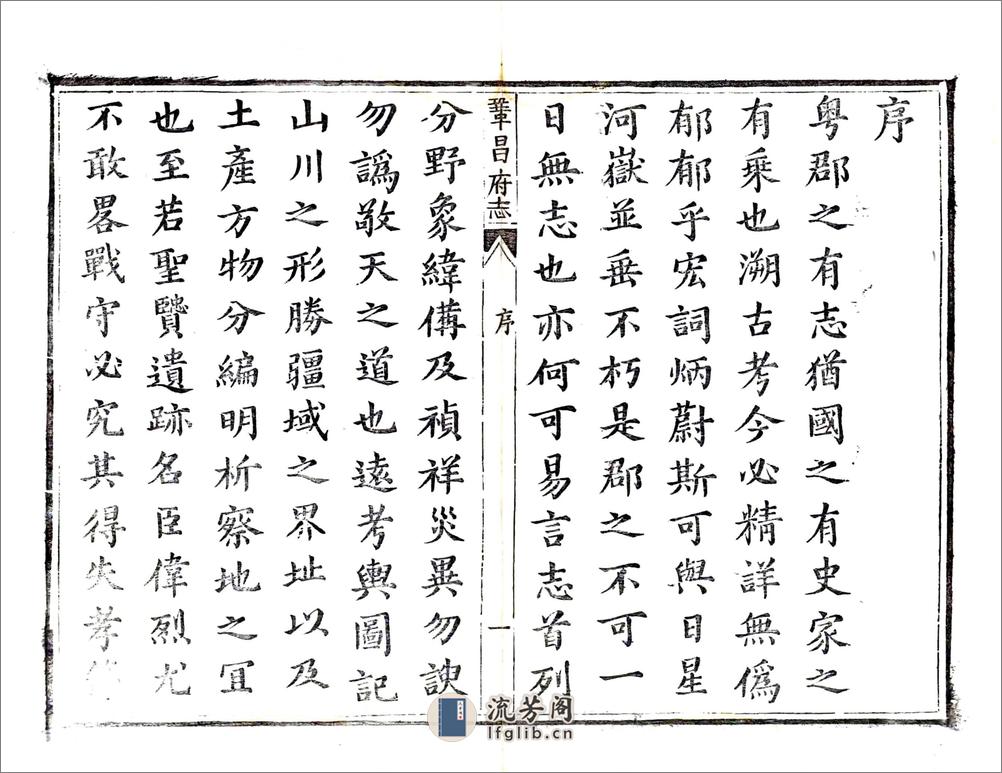 序
粤郡之有志猶國之有史家之
有乗也溯古考今必精詳無僞
郁郁乎宏詞炳蔚斯可與日星
河嶽並垂不朽是郡之不可一
日無志也亦何可易言志首列
鞏昌府志
序
一
分野象緯備及禎祥災異勿諛
勿譌敬天之道也遠考輿圖記
山川之形勝疆域之界址以及
土產方物分編明析察地之宜
也至若聖賢遺跡名臣偉烈尤
不敢畧戰守必究其得失孝
流芳阁
lfglib.cn